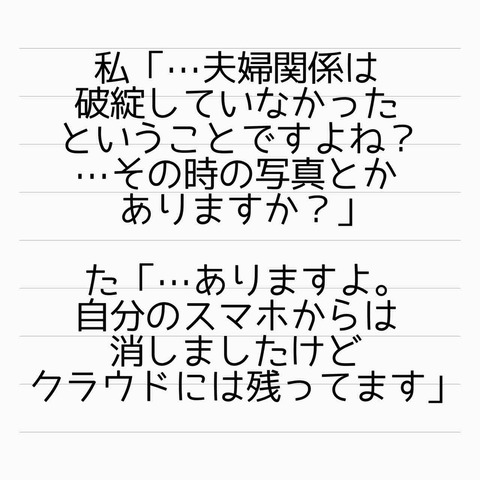 私「…夫婦関係は
破綻していなかった
ということですよね？
…その時の写真とか
ありますか？」
た「…ありますよ。
自分のスマホからは
消しましたけど
クラウドには残ってます」